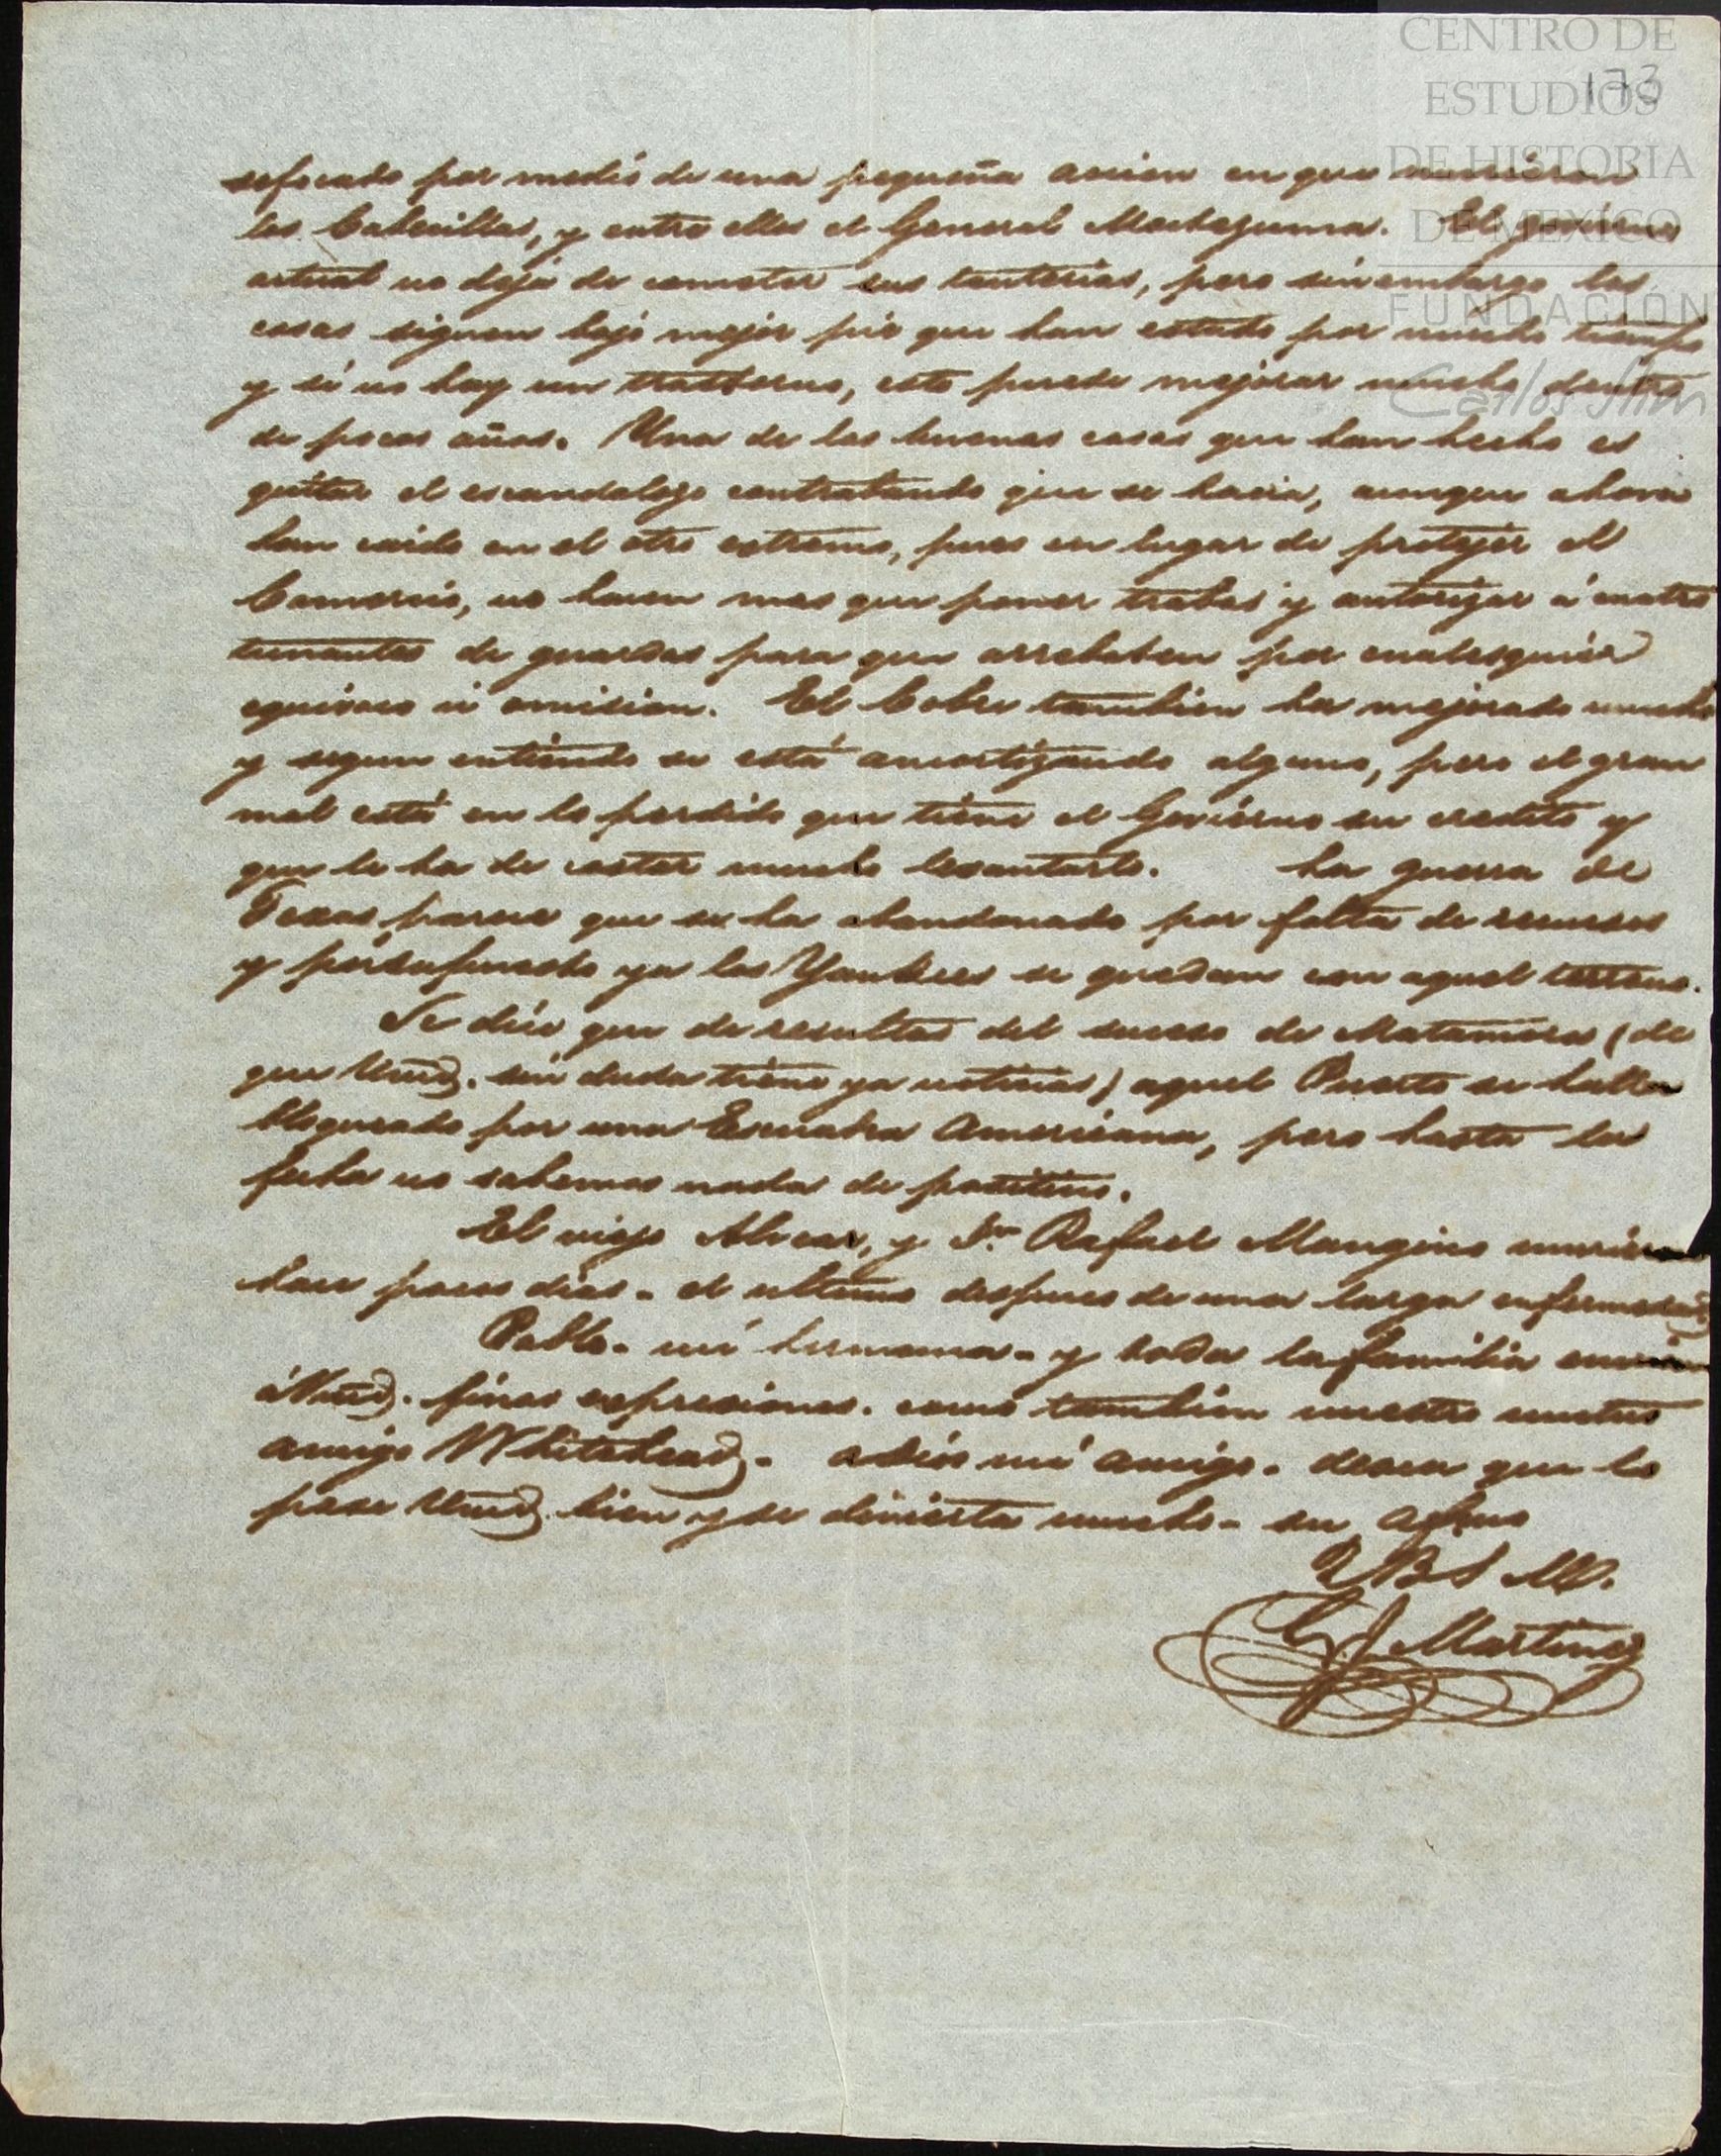 CENTRO DE
ESTUDIOS
DE HISTORIA
DE MEXICO
FUNDACIÓN
Carlos Slim
173
sofocado por medió de una pequeña acion en que murieron
los Cabecillas, y entre ellos el General Moctezuma. El govierno
actual no deja de cometer sus tonterias, pero sin embargo las
cosas siguen bajo mejor pie que han estado por mucho tiempo
y si no hay un trastorno, esto puede mejorar mucho dentro
de pocos años. Una de las buenas cosas que han hecho es
quitar el escandaloso contrabando que se hacia, aunque ahora
han caido en el otro extremo, pues en lugar de protejer el
Comercio, no hacen mas que poner trabas y autorizar á cuatro
tunantes de guardas para que arrebaten por cualesquiér
equivoco ú omision. El Cobre tambien ha mejorado mucho
y segun entiendo se está amortizando alguno, pero el gran
mal está en lo perdido que tiene el Govierno su credito y
que le ha de costar mucho levantarlo. La guerra de
Texas parece que se ha abandonado por falta de recursos
y porsupuesto ya los Yankees se quedan con aquel terreno.
Se dice que de resultas del suceso de Matamoros (de
que Umd. sin duda tiene ya noticias) aquel Puerto se halla
bloqueado por una Escuadra Americana, pero hasta la
fecha no sabemos nada de positivo.
El viejo Alvear, y Dn. Rafael Mangino murieron
hace pocos dias - el ultimo despues de una larga enfermedad
Pablo - mi hermana - y toda la familia envian
á Umd. finas expresiones. como tambien nuestro mutuo
amigo Whitehead. adiós mi amigo. desea que lo
pase Umd. bien y se divierta mucho - su afmo
Q B S M.
C. J. Martinez